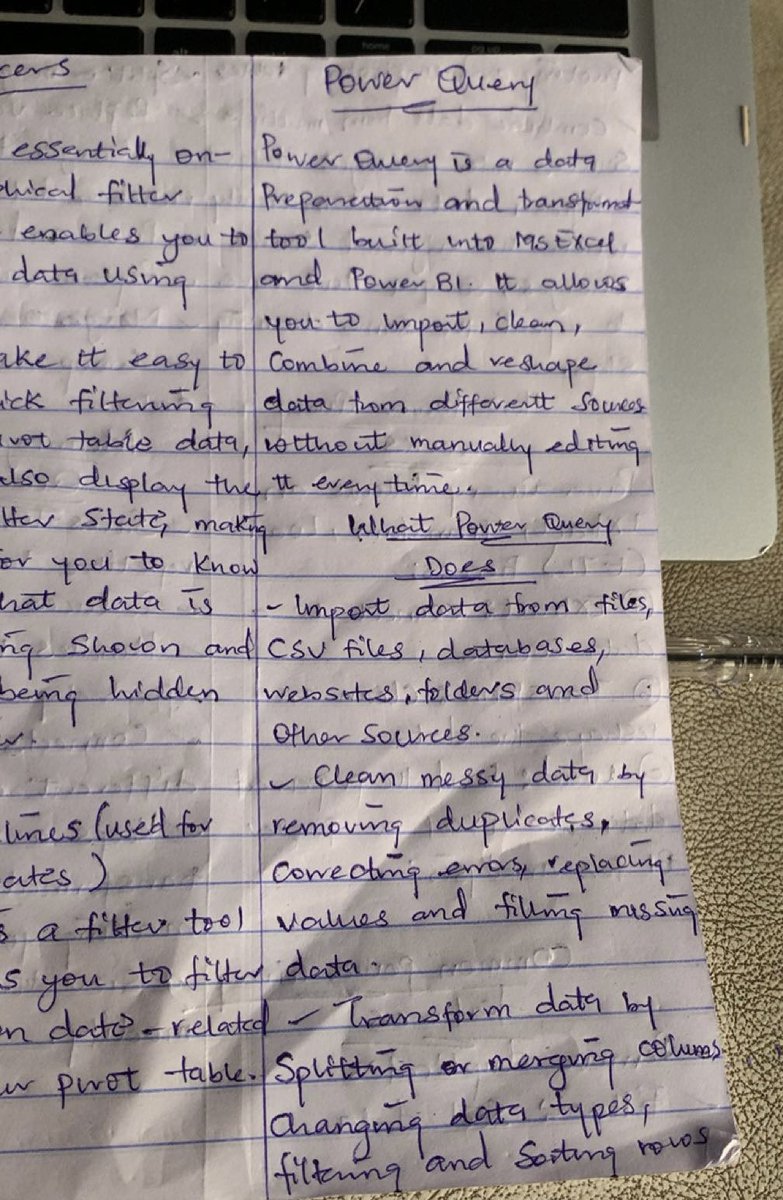 cers
essentially on-
hical filter
enables you to
data using
ake it easy to
ick filtering
vot table data,
also display the
lter State, making
or you to know
hat data is
ng shown and
being hidden
w.
lines (used for
ates)
s a filter tool
s you to filter
n date-related
ur pivot table.
Power Query
Power Query is a data
Preparation and transformat
tool built into MS Excel
and Power BI. It allows
you to import, clean,
Combine and reshape
data from different Sources
without manually editing
it everytime.
What Power Query
Does
- Import data from files,
CSV files, databases,
websites, folders and
Other Sources.
- Clean messy data by
removing duplicates,
Correcting errors, replacing
values and filling missing
data.
- Transform data by
Splitting or merging columns
Changing data types,
filtering and Sorting rows